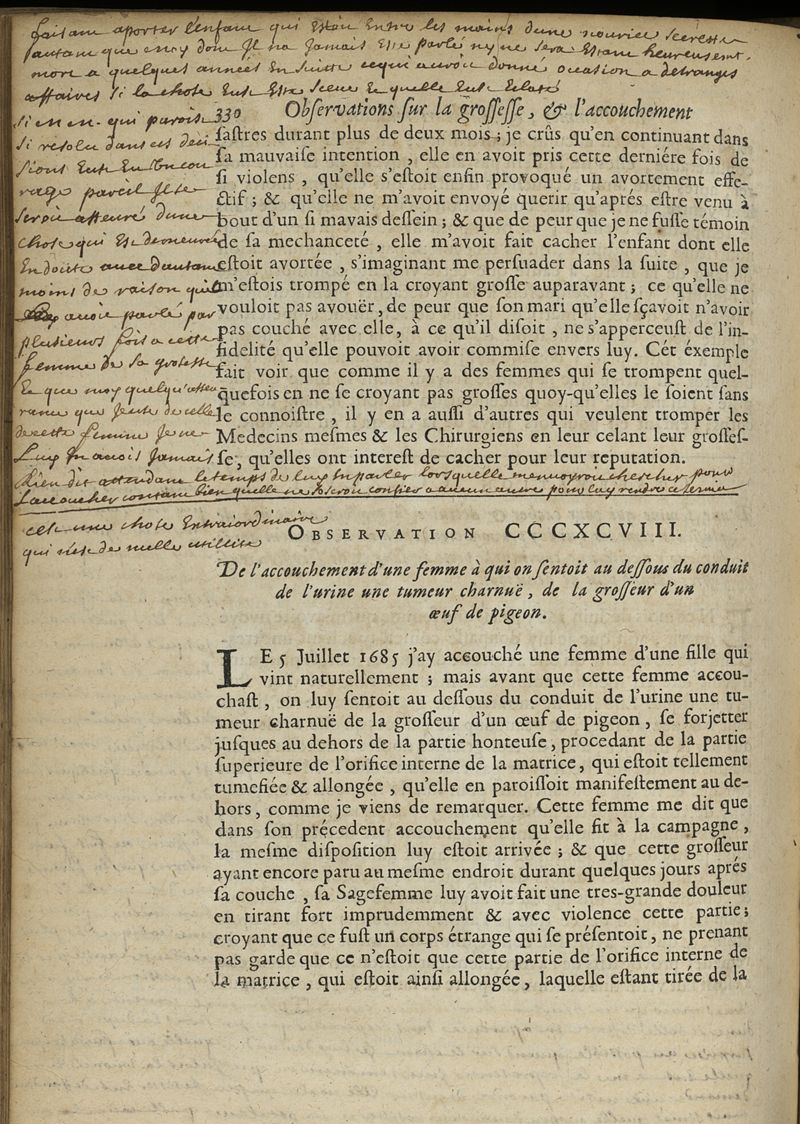 faisant aporter l'enfant qui estoit entre les mains d'une nourice
sautant que moy dont Il na Jamais este parlé ny ne sera estant heureusement
mort a quelques années en suitte ce qui auroit donné ocation a detranges
affaires si la chose eust este sceue & quelle eust eclaté
330 Obſervations ſur la groſſeſſe, & l'accouchement
ſaſtres durant plus de deux mois ; je crûs qu'en continuant dans
ſa mauvaiſe intention , elle en avoit pris cette derniére fois de
ſi violens , qu'elle s'eſtoit enfin provoqué un avortement effe-
ctif ; & qu'elle ne m'avoit envoyé querir qu'aprés eſtre venu à
bout d'un ſi mavais deſſein ; & que de peur que je ne fuſſe témoin
de ſa mechanceté , elle m'avoit fait cacher l'enfant dont elle
eſtoit avortée , s'imaginant me perſuader dans la ſuite , que je
m'eſtois trompé en la croyant groſſe auparavant ; ce qu'elle ne
vouloit pas avouër, de peur que ſon mari qu'elle ſçavoit n'avoir
pas couché avec elle, à ce qu'il diſoit , ne s'apperceuſt de l'in-
fidelité qu'elle pouvoit avoir commiſe envers luy. Cét éxemple
fait voir que comme il y a des femmes qui ſe trompent quel-
quefois en ne ſe croyant pas groſſes quoy-qu'elles le ſoient ſans
le connoiſtre , il y en a auſſi d'autres qui veulent tromper les
Medecins meſmes & les Chirurgiens en leur celant leur groſſeſ-
ſe , qu'elles ont intereſt de cacher pour leur reputation.
si en en qui parois
si resolu dans
sions eust
pareil
seroit asseuré d'une
chose qui est demeurée
En doute avec d'autant
moins de raison
avoit parlé par
plusieurs fois a cette
femme de sa grosesse
de cette femme Je ne
luy En avois Jamais
Rien dit attendant le temps de luy En parler lorsquelle menvoyroit chercher pour
laccoucher contant bien quelle ne se seroit confiée a aucun autre pour luy rendre ce service
cest une chose Extraordinaire
qui n'est de nulle utilité
OBSERVATION CCCXCVIII.
De l'accouchement d'une femme à qui on ſentoit au deſſous du conduit
de l'urine une tumeur charnuë , de la groſſeur d'un
œuf de pigeon.
LE 5 Juillet 1685 j'ay accouché une femme d'une fille qui
vint naturellement ; mais avant que cette femme accou-
chaſt , on luy ſentoit au deſſous du conduit de l'urine une tu-
meur charnuë de la groſſeur d'un œuf de pigeon , ſe forjetter
juſques au dehors de la partie honteuſe , procedant de la partie
ſuperieure de l'orifice interne de la matrice , qui eſtoit tellement
tumefiée & allongée , qu'elle en paroiſſoit manifeſtement au de-
hors , comme je viens de remarquer. Cette femme me dit que
dans ſon précedent accouchement qu'elle fit à la campagne ,
la meſme diſpoſition luy eſtoit arrivée ; & que cette groſſeur
ayant encore paru au meſme endroit durant quelques jours aprés
ſa couche , ſa Sagefemme luy avoit fait une tres-grande douleur
en tirant fort imprudemment & avec violence cette partie ;
croyant que ce fuſt un corps étrange qui ſe préſentoit , ne prenant
pas garde que ce n'eſtoit que cette partie de l'orifice interne de
la matrice , qui eſtoit ainſi allongée , laquelle eſtant tirée de la